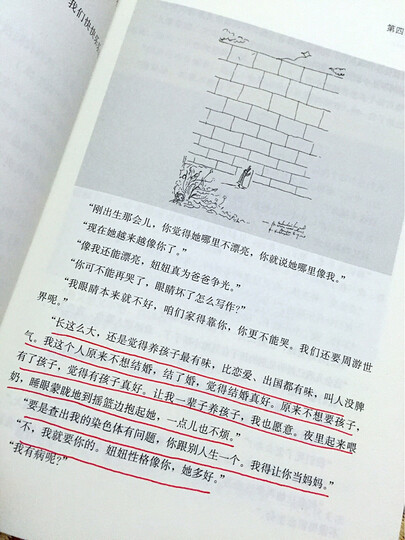 第四
我们快快乐
“刚出生那会儿，你觉得她哪里不漂亮，你就说她哪里像我。”
“现在她越来越像你了。”
“像我还能漂亮，妞妞真为爸爸争光。”
“你可不能再哭了，眼睛坏了怎么写作？”
“我眼睛本来就不好，咱们家得靠你，你更不能哭。我们还要周游世
界呢。”
“长这么大，还是觉得养孩子最有味，比恋爱、出国都有味，叫人没脾
气。我这个人原来不想结婚，结了婚，觉得结婚真好。原来不想要孩子，
有了孩子，觉得有孩子真好。让我一辈子养孩子，我也愿意。夜里起来喂
奶，睡眼蒙眬地到摇篮边抱起她，一点儿也不烦。”
“要是查出我的染色体有问题，你跟别人生一个。我得让你当妈妈。”
“不，我就要你的。妞妞性格像你，她多好。”
“我有病呢？”